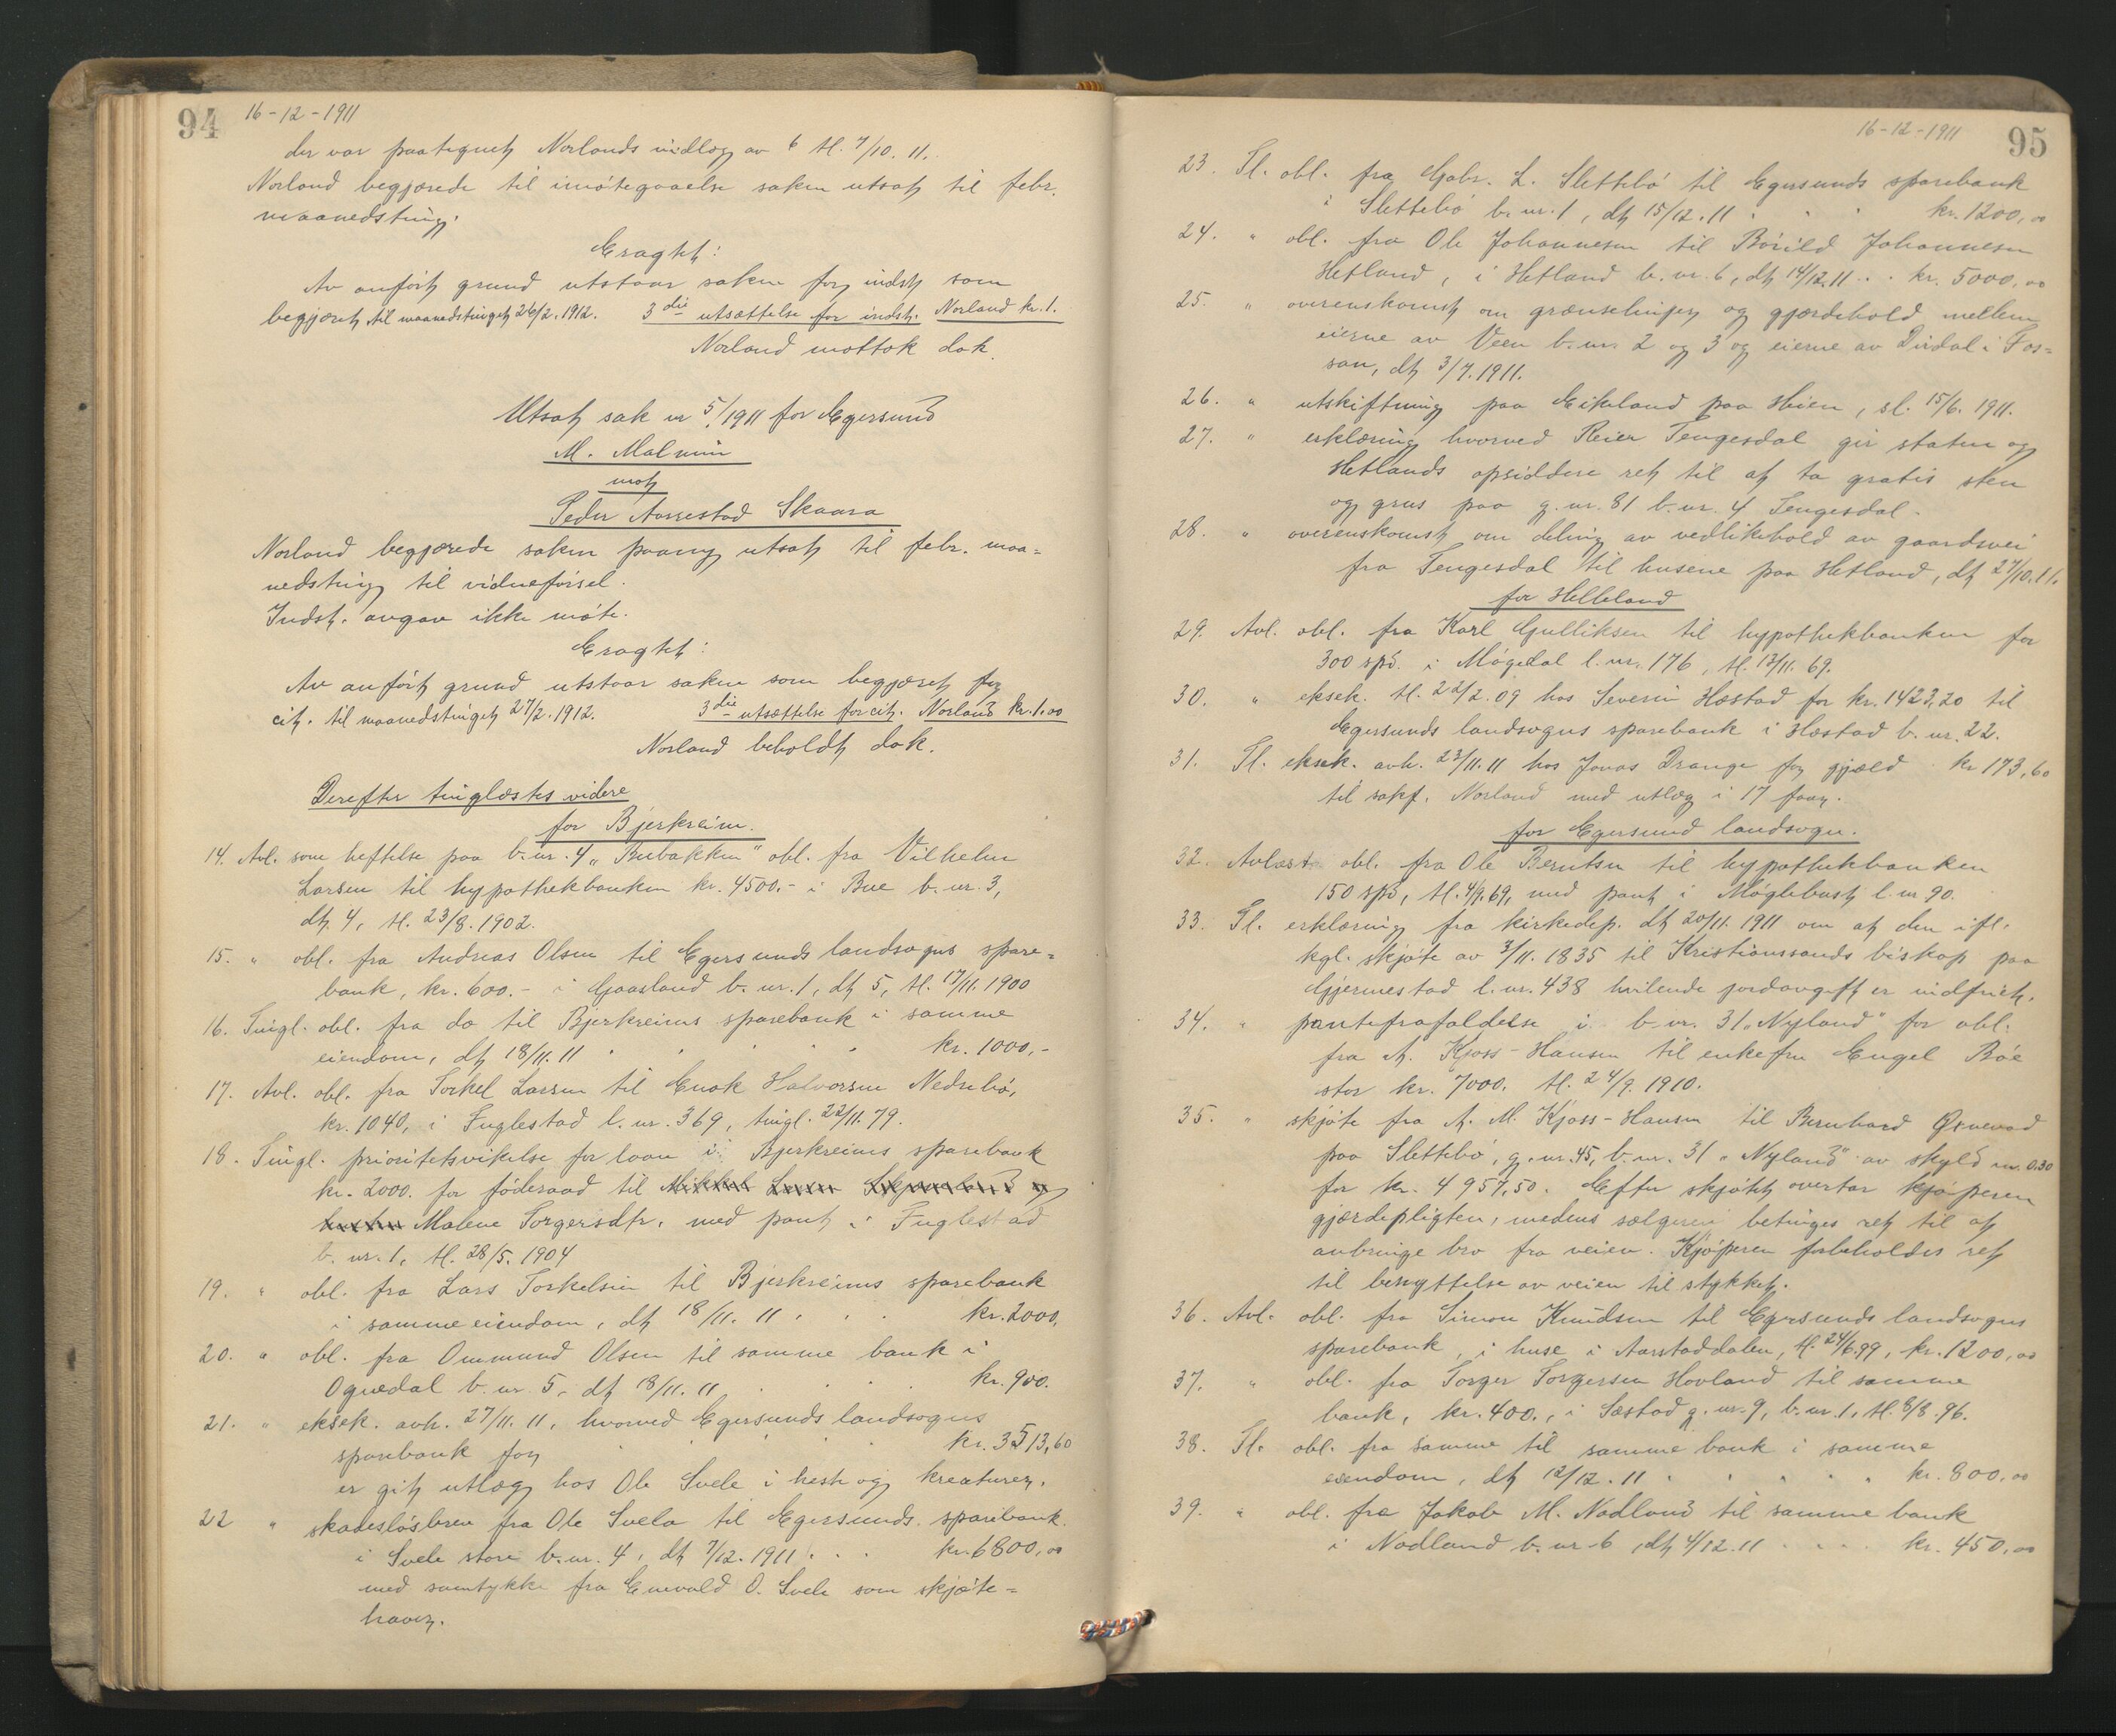 94 16-12-1911
der var paategnet Norlands indlæg av 6 tl. 7/10. 11.
Norland begjærede til imøtegaaelse saken utsat til febr.
maanedsting.
Eragtet:
Av anført grund utstaar saken for indst. som
begjæret til maanedstinget 26/2. 1912. 3die utsættelse for indst. Norland kr. 1.
Norland mottok dok.
Utsat sak nr 5/1911 for Egersund
M. Malmin
mot
Peder Aarrestad Skaara
Norland begjærede saken paany utsat til febr. maa=
nedsting til vidneførsel.
Indst. avgav ikke møte.
Eragtet:
Av anført grund utstaar saken som begjæret for
cit. til maanedstinget 27/2. 1912. 3die utsættelse for cit. Norland kr. 1.00
Norland beholdt dok.
Derefter tinglæstes videre
for Bjerkreim.
14. Avl. som heftelse paa b. nr. 4 „Bubakken" obl. fra Vilhelm
Larsen til hypothekbanken kr. 4500.- i Bue b. nr. 3,
dt. 4, tl. 23/8. 1902.
15. „ obl. fra Andreas Olsen til Egersunds landsogns spare=
bank, kr. 600.- i Gaasland b. nr. 1, dt 5, tl. 17/11. 1900
16. Tingl. obl. fra do til Bjerkreims sparebank i samme
eiendom, dt 18/11. 11 kr. 1000,-
17. Avl. obl. fra Torkel Larsen til Enok Halvorsen Nedrebø,
kr. 1040, i Fuglestad l. nr. 369, tingl. 22/11. 79.
18. Tingl. prioritetsvikelse for laan i Bjerkreims sparebank
kr. 2000. for føderaad til Mikkel Larsen Skjæveland og
hustru Malene Torgersdtr. med pant i Fuglestad
b. nr. 1, tl. 28/5. 1904
19. „ obl. fra Lars Torkelsen til Bjerkreims sparebank
i samme eiendom, dt 18/11. 11 kr. 2000.
20. „ obl. fra Ommund Olsen til samme bank i
Ognedal b. nr 5, dt 18/11. 11 kr. 900.
21. „ eksek. avh. 27/11. 11, hvorved Egersunds landsogns
sparebank for kr. 3513,60
er git utlæg hos Ole Svele i hest og kreaturer.
22 „ skadesløsbrev fra Ole Svela til Egersunds sparebank
i Svele store b. nr. 4, dt 7/12. 1911 kr. 6800,00
med samtykke fra Enevald O. Svele som skjøte=
haver.
16-12-1911 95
23. Tl. obl. fra Gabr. L. Slettebø til Egersunds sparebank
i Slettebø b. nr. 1, dt 15/12. 11 kr. 1200,00
24. „ obl. fra Ole Johannesen til Børild Johannesen
Hetland, i Hetland b. nr. 6, dt 14/12. 11 .. kr. 5000,00
25. „ overenskomst om grænselinjer og gjærdehold mellem
eierne av Veen b. nr. 2 og 3 og eierne av Dirdal i Fos=
san, dt 3/7. 1911.
26. „ utskiftning paa Eikeland paa Heien, sl. 15/6. 1911.
27. „ erklæring hvorved Reier Tengesdal gir staten og
Hetlands opsiddere ret til at ta gratis sten
og grus paa g. nr. 81 b. nr. 4 Tengesdal.
28. „ overenskomst om deling av vedlikehold av gaardsvei
fra Tengesdal til husene paa Hetland, dt 27/10. 11.
for Helleland
29. Avl. obl. fra Karl Gulliksen til hypothekbanken for
300 spd. i Møgedal l. nr. 176, tl. 13/11. 69.
30. „ eksek. tl. 22/2. 09 hos Severin Hæstad for kr. 1423,20 til
Egersunds landsogns sparebank i Hæstad b. nr. 22.
31. Tl. eksek. avh. 23/11. 11 hos Jonas Drange for gjæld kr 173,60
til sakf. Norland med utlæg i 17 faar.
for Egersund landsogn.
32. Avlæst obl. fra Ole Berntsen til hypothekbanken
150 spd, tl. 4/9. 69, med pant i Møglebust l. nr 90.
33. Tl. erklæring fra kirkedep. dt 20/11. 1911 om at den ifl.
kgl. skjøte av 3/11. 1835 til Kristianssands biskop paa
Gjermestad l. nr. 438 hvilende jordavgift er indfriet.
34. „ pantefrafaldelse i b. nr. 31 „Nyland" for obl.
fra A. Kjoss-Hansen til enkefru Engel Bøe
stor kr. 7000. tl. 24/9. 1910.
35. „ skjøte fra A. M. Kjoss-Hansen til Bernhard Ørnevad
paa Slettebø, g. nr. 45, b. nr. 31 „Nyland" av skyld m. 0.30
for kr. 4957,50. Efter skjøtet overtar kjøperen
gjærdepligten, medens sælgeren betinges ret til at
anbringe bro fra veien. Kjøperen forbeholdes ret
til benyttelse av veien til stykket.
36. Avl. obl. fra Simon Knudsen til Egersunds landsogns
sparebank, i huse i Aarstaddalen, tl. 24/6. 99, kr. 1200,00
37. „ obl. fra Torger Torgersen Hovland til samme
bank, kr. 400., i Sæstad g. nr. 9, b. nr. 1, tl. 8/8. 96.
38. Tl. obl. fra samme til samme bank i samme
eiendom, dt 12/12. 11 kr. 800,00
39. „ obl. fra Jakob M. Nodland til samme bank
i Nodland b. nr 6, dt 4/12. 11 kr. 450,00